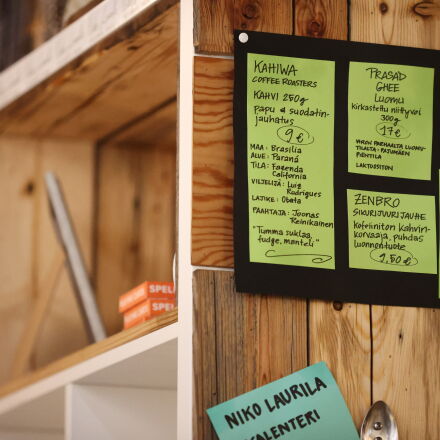 KAHIWA
COFFEE ROASTERS
KAHVI 250g
papu & suodatin-
jauhatus
9€
MAA: Brasilia
ALUE: Paraná
TILA: Fazenda
California
VILJELIJÄ: Luiz
Rodrigues
LAJIKE: Obata
PAAHTAJA: Joonas
Reinikainen
"Tumma suklaa,
fudge, manteli"
PRASAD
GHEE
LUOMU
kirkastettu niittyvoi
300g
17€
VIRON PARHAALTA LUOMU-
TILALTA - PAJUMÄEN
PIENTILA
LAKTOOSITON
ZENBRO
SIKURIJUURIJAUHE
kofeiiniton kahvin-
korvaaja, puhdas
luonnontuote
9,50€
SPEL
SPE
NIKO LAURILA
KALENTERI